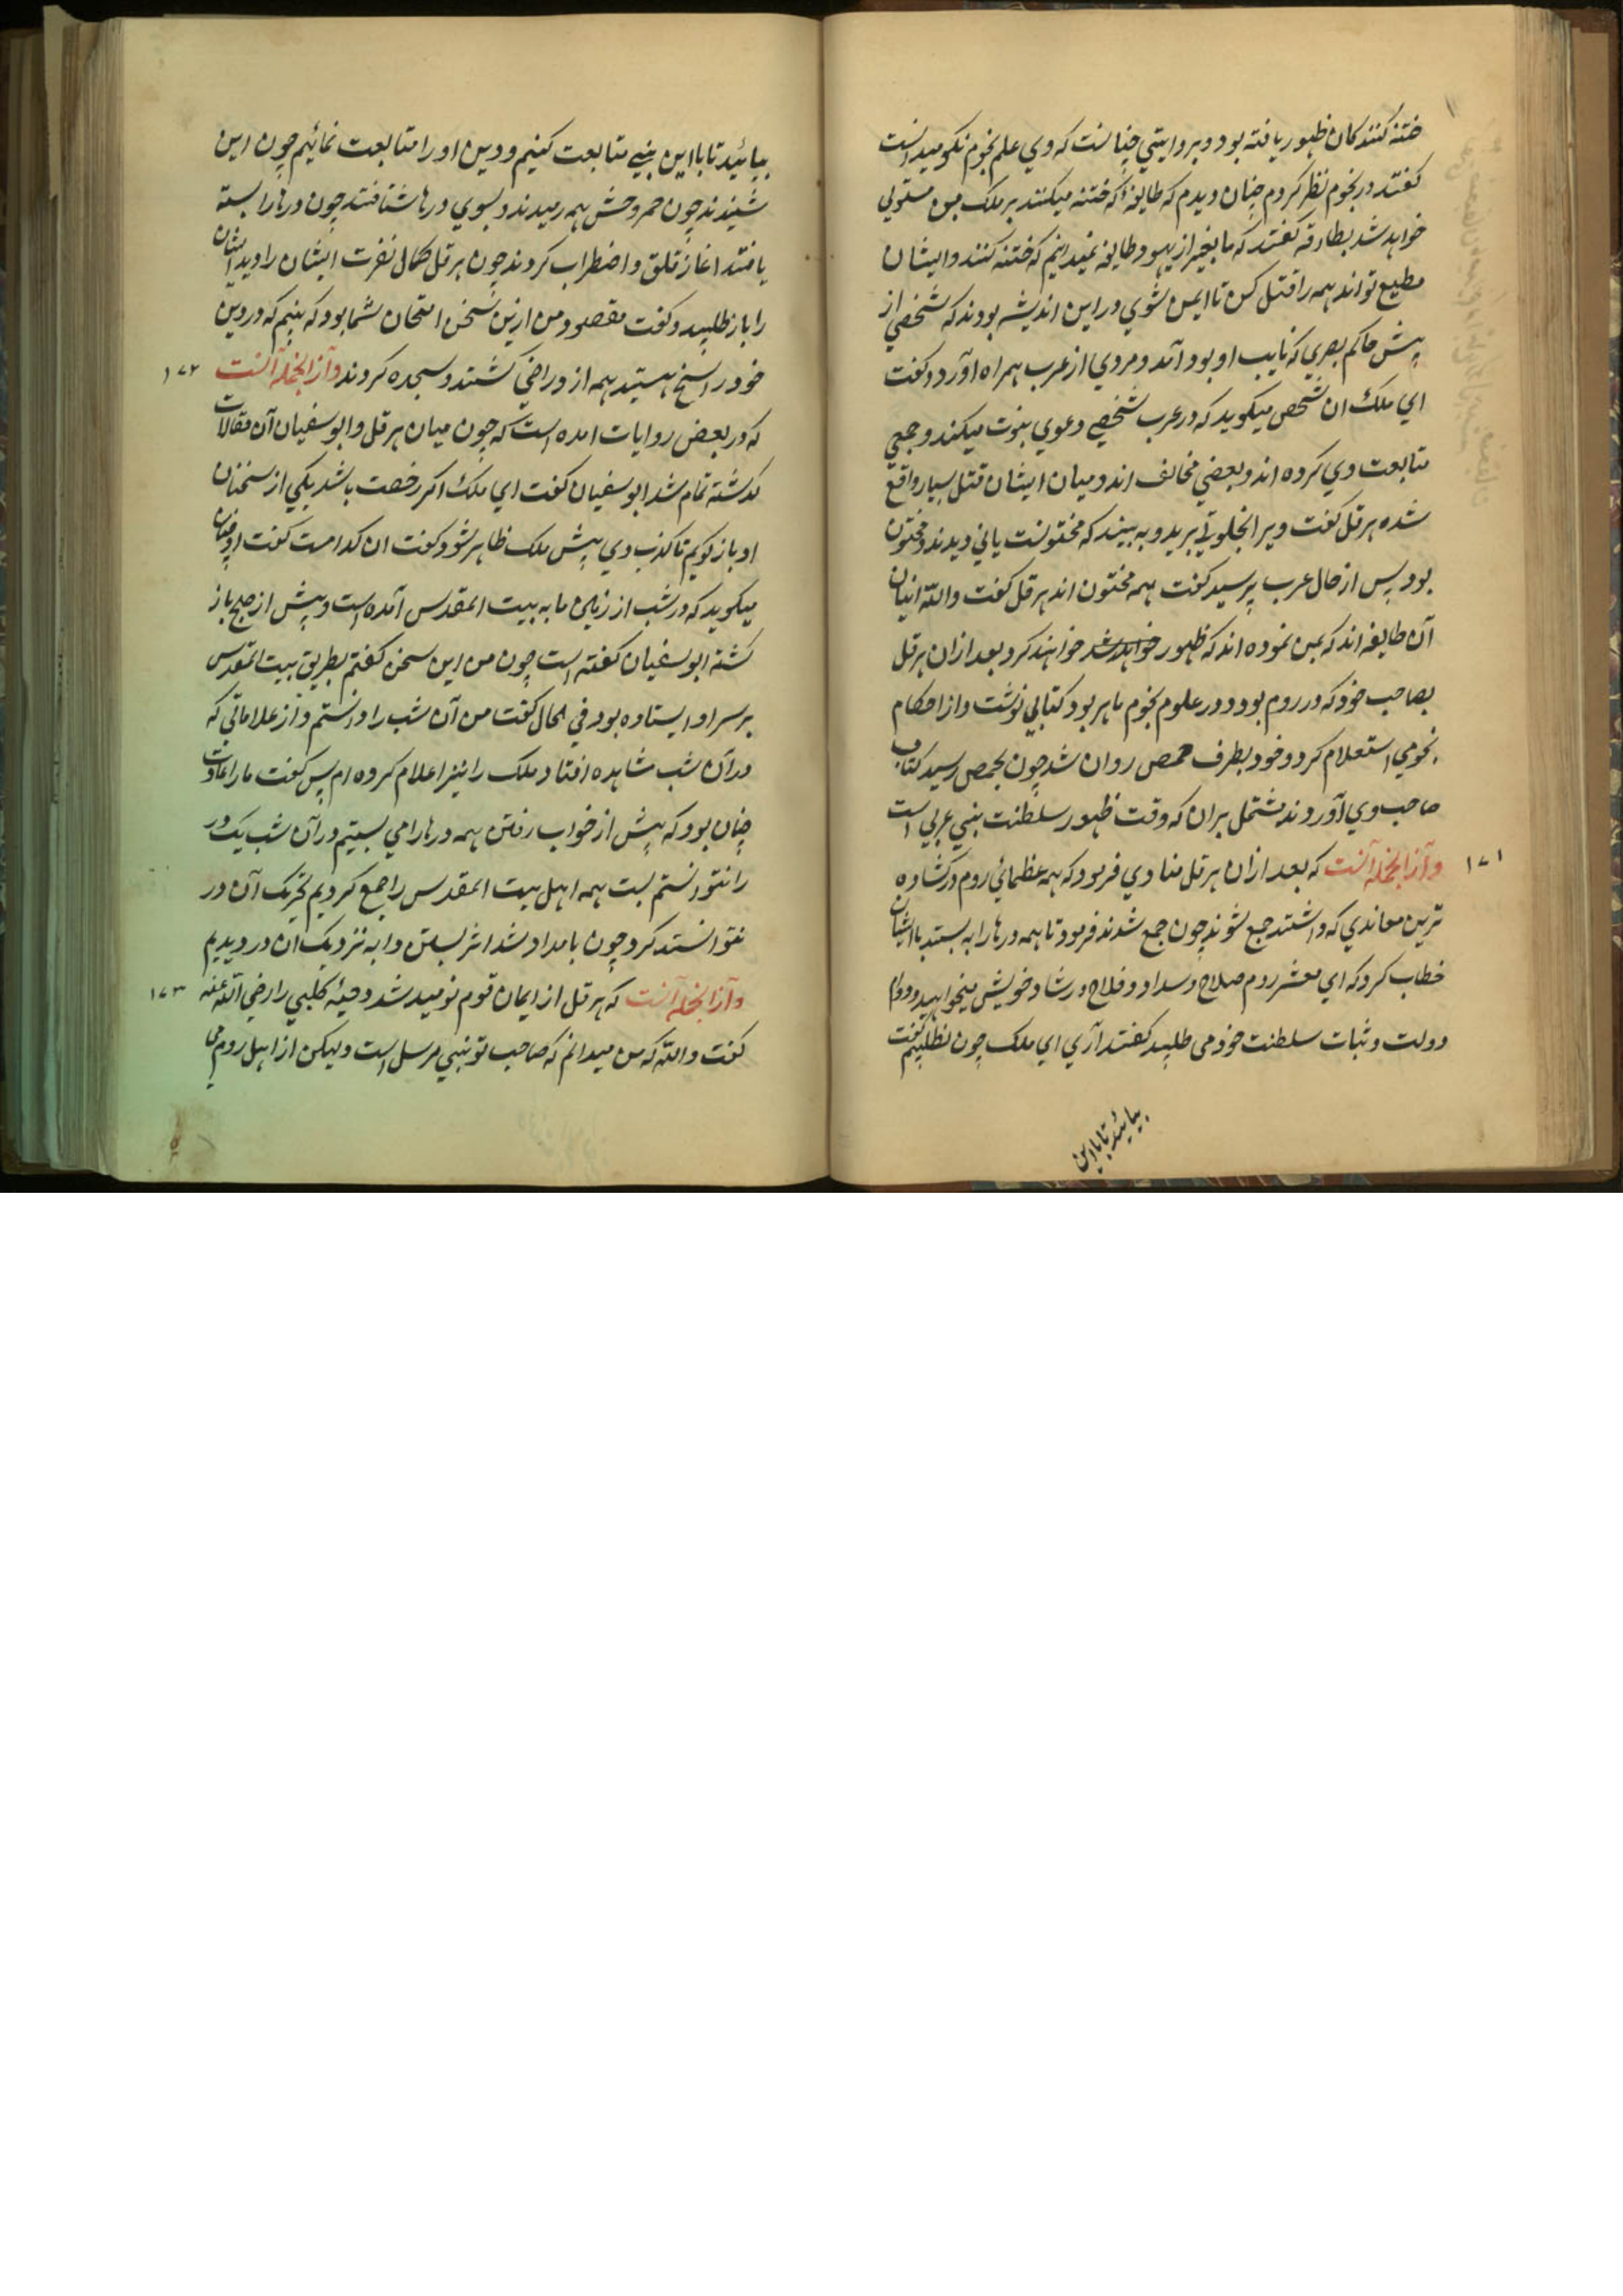 ختنه کنندکان ظهور یافته بود و بروایتی چنانست که وی علم نجوم نکو میدانست
کفتند در نجوم نظر کردم چنان دیدم که طایفهٔ که ختنه میکنند بر ملک من مستولی
خواهد شد بطارقه کفتند که ما بغیر از یهود طایفه نمیدانیم که ختنه کنند و ایشان
مطیع تواند همه را قتل کن تا ایمن شوی در این اندیشه بودند که شخصی از
پیش حاکم بصری که نایب او بود آمد و مردی از عرب همراه آورد و کفت
ای ملک ان شخص میکوید که در عرب شخصی دعوی نبوت میکند و جمعی
متابعت وی کرده اند و بعضی مخالف اند و میان ایشان قتل بسیار واقع
شده هرقل کفت ویرا بخلوتی برید و به بینید که مختونست یا نی دیدند و مختون
بود پس از حال عرب پرسید کفت همه مختون اند هرقل کفت والله اینان
آن طایفه اند که بمن نموده اند که ظهور خواهد شد خواهند کرد بعد ازان هرقل
بصاحب خود که در روم بود و در علوم نجوم ماهر بود کتابی نوشت و از احکام
نجومی استعلام کرد و خود بطرف حمص روان شد چون بحمص رسید کتاب
صاحب وی آوردند مشتمل بران که وقت ظهور سلطنت نبی عربی است
۱۷۱ و آز الجمله آنست که بعد ازان هرقل منادی فرمود که همه عظمائی روم در کشاده
ترین معاندی که داشتند جمع شوند چون جمع شدند فرمود تا همه درها را به بستند با ایشان
خطاب کرد که ای معشر روم صلاح و سداد و فلاح و رشاد خویش میخواهید و دوام
دولت و ثبات سلطنت خود می طلبید کفتند آری ای ملک چون نطلبیم کفت
بیائید تا با این
بیائید تا با این نبی متابعت کنیم و دین او را متابعت نمائیم چون این
شنیدند چون حمر وحش همه رمیدند و بسوی درها شتافتند چون درها را بسته
یافتند اغاز قلق و اضطراب کردند چون هرقل کمال نفرت ایشان را دید ایشان
را باز طلبید و کفت مقصود من ازین سخن امتحان شما بود که بینم که در دین
خود راسخ هستید همه از و راضی کشتند و سجده کردند و آز الجمله آنست ۱۷۲
که در بعض روایات امده است که چون میان هرقل و ابو سفیان آن مقالات
کذشته تمام شد ابو سفیان کفت ای ملک اکر رخصت باشد یکی از سخنان
او باز کویم تا کذب وی پیش ملک ظاهر شود کفت ان کدامست کفت او چنان
میکوید که در شب از زمین ما به بیت المقدس آمده است و پیش از صبح باز
کشته ابو سفیان کفته است چون من این سخن کفتم بطریق بیت المقدس
بر سر او ایستاده بود فی الحال کفت من آن شب را دانستم و از علاماتی که
در آن شب مشاهده افتاد ملک را نیز اعلام کرده ام پس کفت ما را عادت
چنان بود که پیش از خواب رفتن همه درها را می بستیم در آن شب یک در
را نتوانستم بست همه اهل بیت المقدس را جمع کردیم تحریک آن در
نتوانستند کرد چون بامداد شد اثر بستن دابه نزدیک ان در دیدیم
و آز الجمله آنست که هرقل از ایمان قوم نومید شد دحیهٔ کلبی را رضی الله عنه ۱۷۳
کفت والله که من میدانم که صاحب تو نبی مرسل است ولیکن از اهل روم می